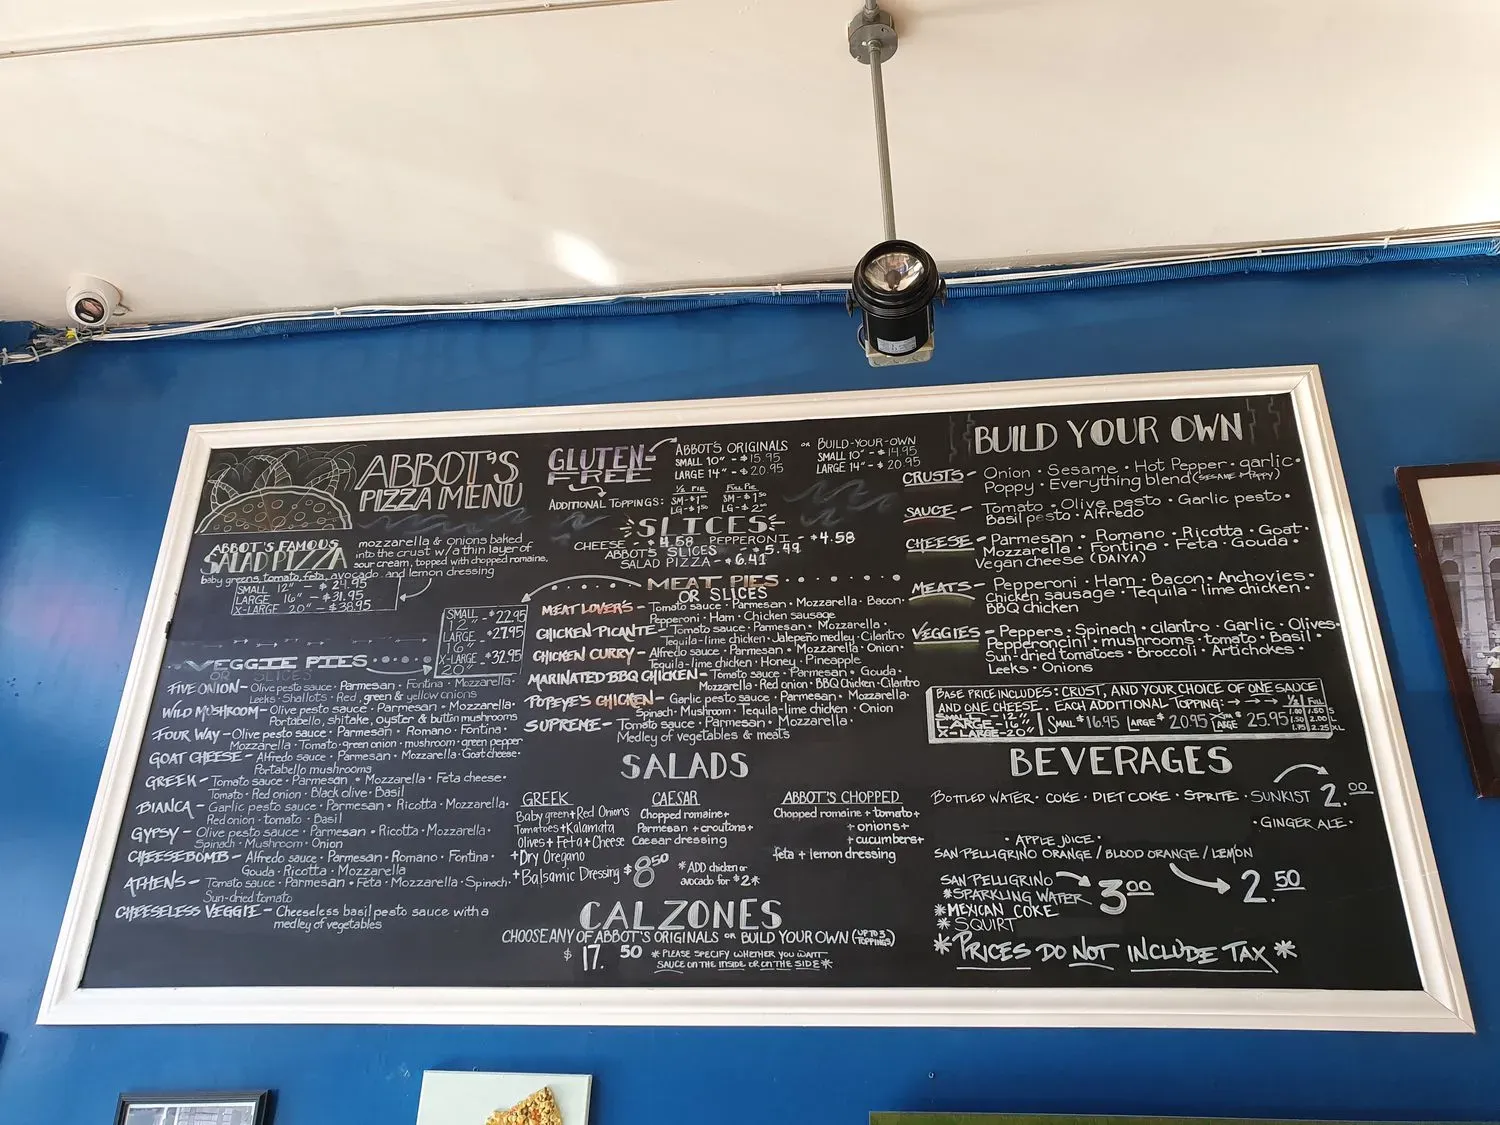 ABBOT'S
PIZZA MENU
ABBOT'S FAMOUS
SALAD PIZZA
mozzarella & onions baked
into the crust w/a thin layer of
sour cream, topped with chopped romaine,
baby greens, tomato, feta, avocado, and lemon dressing
SMALL 12" - $24.95
LARGE 16" - $31.95
X-LARGE 20" - $38.95
SMALL - $22.95
12"
LARGE - $27.95
16"
X-LARGE - $32.95
20"
VEGGIE PIES
OR SLICES
FIVE ONION - Olive pesto sauce · Parmesan · Fontina · Mozzarella ·
Leeks · Shallots · Red, green & yellow onions
WILD MUSHROOM - Olive pesto sauce · Parmesan · Mozzarella ·
Portabello, shitake, oyster & button mushrooms
FOUR WAY - Olive pesto sauce · Parmesan · Romano · Fontina ·
Mozzarella · Tomato · green onion · mushroom · green pepper
GOAT CHEESE - Alfredo sauce · Parmesan · Mozzarella · Goat cheese ·
Portabello mushrooms
GREEK - Tomato sauce · Parmesan · Mozzarella · Feta cheese ·
Tomato · Red onion · Black olive · Basil
BIANCA - Garlic pesto sauce · Parmesan · Ricotta · Mozzarella ·
Red onion · tomato · Basil
GYPSY - Olive pesto sauce · Parmesan · Ricotta · Mozzarella ·
Spinach · Mushroom · Onion
CHEESEBOMB - Alfredo sauce · Parmesan · Romano · Fontina ·
Gouda · Ricotta · Mozzarella
ATHENS - Tomato sauce · Parmesan · Feta · Mozzarella · Spinach ·
Sun-dried tomato
CHEESELESS VEGGIE - Cheeseless basil pesto sauce with a
medley of vegetables
GLUTEN-
FREE
ABBOT'S ORIGINALS
SMALL 10" - $15.95
LARGE 14" - $20.95
OR BUILD-YOUR-OWN
SMALL 10" - $14.95
LARGE 14" - $20.95
ADDITIONAL TOPPINGS:
½ PIE FULL PIE
SM - $1⁰⁰ SM - $1⁵⁰
LG - $1⁵⁰ LG - $2⁰⁰
SLICES
CHEESE - $4.58 PEPPERONI - $4.58
ABBOT'S SLICES - $5.49
SALAD PIZZA - $6.41
MEAT PIES
OR SLICES
MEAT LOVER'S - Tomato sauce · Parmesan · Mozzarella · Bacon ·
Pepperoni · Ham · Chicken sausage
CHICKEN PICANTE - Tomato sauce · Parmesan · Mozzarella ·
Tequila-lime chicken · Jalapeño medley · Cilantro
CHICKEN CURRY - Alfredo sauce · Parmesan · Mozzarella · Onion ·
Tequila-lime chicken · Honey · Pineapple
MARINATED BBQ CHICKEN - Tomato sauce · Parmesan · Gouda ·
Mozzarella · Red onion · BBQ Chicken · Cilantro
POPEYE'S CHICKEN - Garlic pesto sauce · Parmesan · Mozzarella ·
Spinach · Mushroom · Tequila-lime chicken · Onion
SUPREME - Tomato sauce · Parmesan · Mozzarella ·
Medley of vegetables & meats
SALADS
GREEK
Baby green + Red Onions
Tomatoes + Kalamata
Olives + Feta + Cheese
+ Dry Oregano
+ Balsamic Dressing
CAESAR
Chopped romaine +
Parmesan + croutons +
Caesar dressing
$8⁵⁰
* ADD chicken or
avocado for $2 *
ABBOT'S CHOPPED
Chopped romaine + tomato +
+ onions +
+ cucumbers +
feta + lemon dressing
CALZONES
CHOOSE ANY OF ABBOT'S ORIGINALS OR BUILD YOUR OWN (UP TO 3 TOPPINGS)
$17.50
* PLEASE SPECIFY WHETHER YOU WANT
SAUCE ON THE INSIDE OR ON THE SIDE *
BUILD YOUR OWN
CRUSTS - Onion · Sesame · Hot Pepper · garlic ·
Poppy · Everything blend (SESAME & POPPY)
SAUCE - Tomato · Olive pesto · Garlic pesto ·
Basil pesto · Alfredo
CHEESE - Parmesan · Romano · Ricotta · Goat ·
Mozzarella · Fontina · Feta · Gouda ·
Vegan cheese (DAIYA)
MEATS - Pepperoni · Ham · Bacon · Anchovies ·
Chicken sausage · Tequila-lime chicken ·
BBQ chicken
VEGGIES - Peppers · Spinach · cilantro · Garlic · Olives ·
Pepperoncini · mushrooms · tomato · Basil ·
Sun-dried tomatoes · Broccoli · Artichokes ·
Leeks · Onions
BASE PRICE INCLUDES: CRUST, AND YOUR CHOICE OF ONE SAUCE
AND ONE CHEESE. EACH ADDITIONAL TOPPING: ½ FULL
SMALL - 12" 1.00 1.50 S
LARGE - 16" SMALL $16.95 LARGE $20.95 X-LARGE 25.95 1.50 2.00 L
X-LARGE - 20" 1.75 2.25 XL
BEVERAGES
BOTTLED WATER · COKE · DIET COKE · SPRITE · SUNKIST 2.00
· GINGER ALE ·
· APPLE JUICE ·
SAN PELLIGRINO ORANGE / BLOOD ORANGE / LEMON 2.50
SAN PELLIGRINO 3⁰⁰
* SPARKLING WATER
* MEXICAN COKE
* SQUIRT
* PRICES DO NOT INCLUDE TAX *